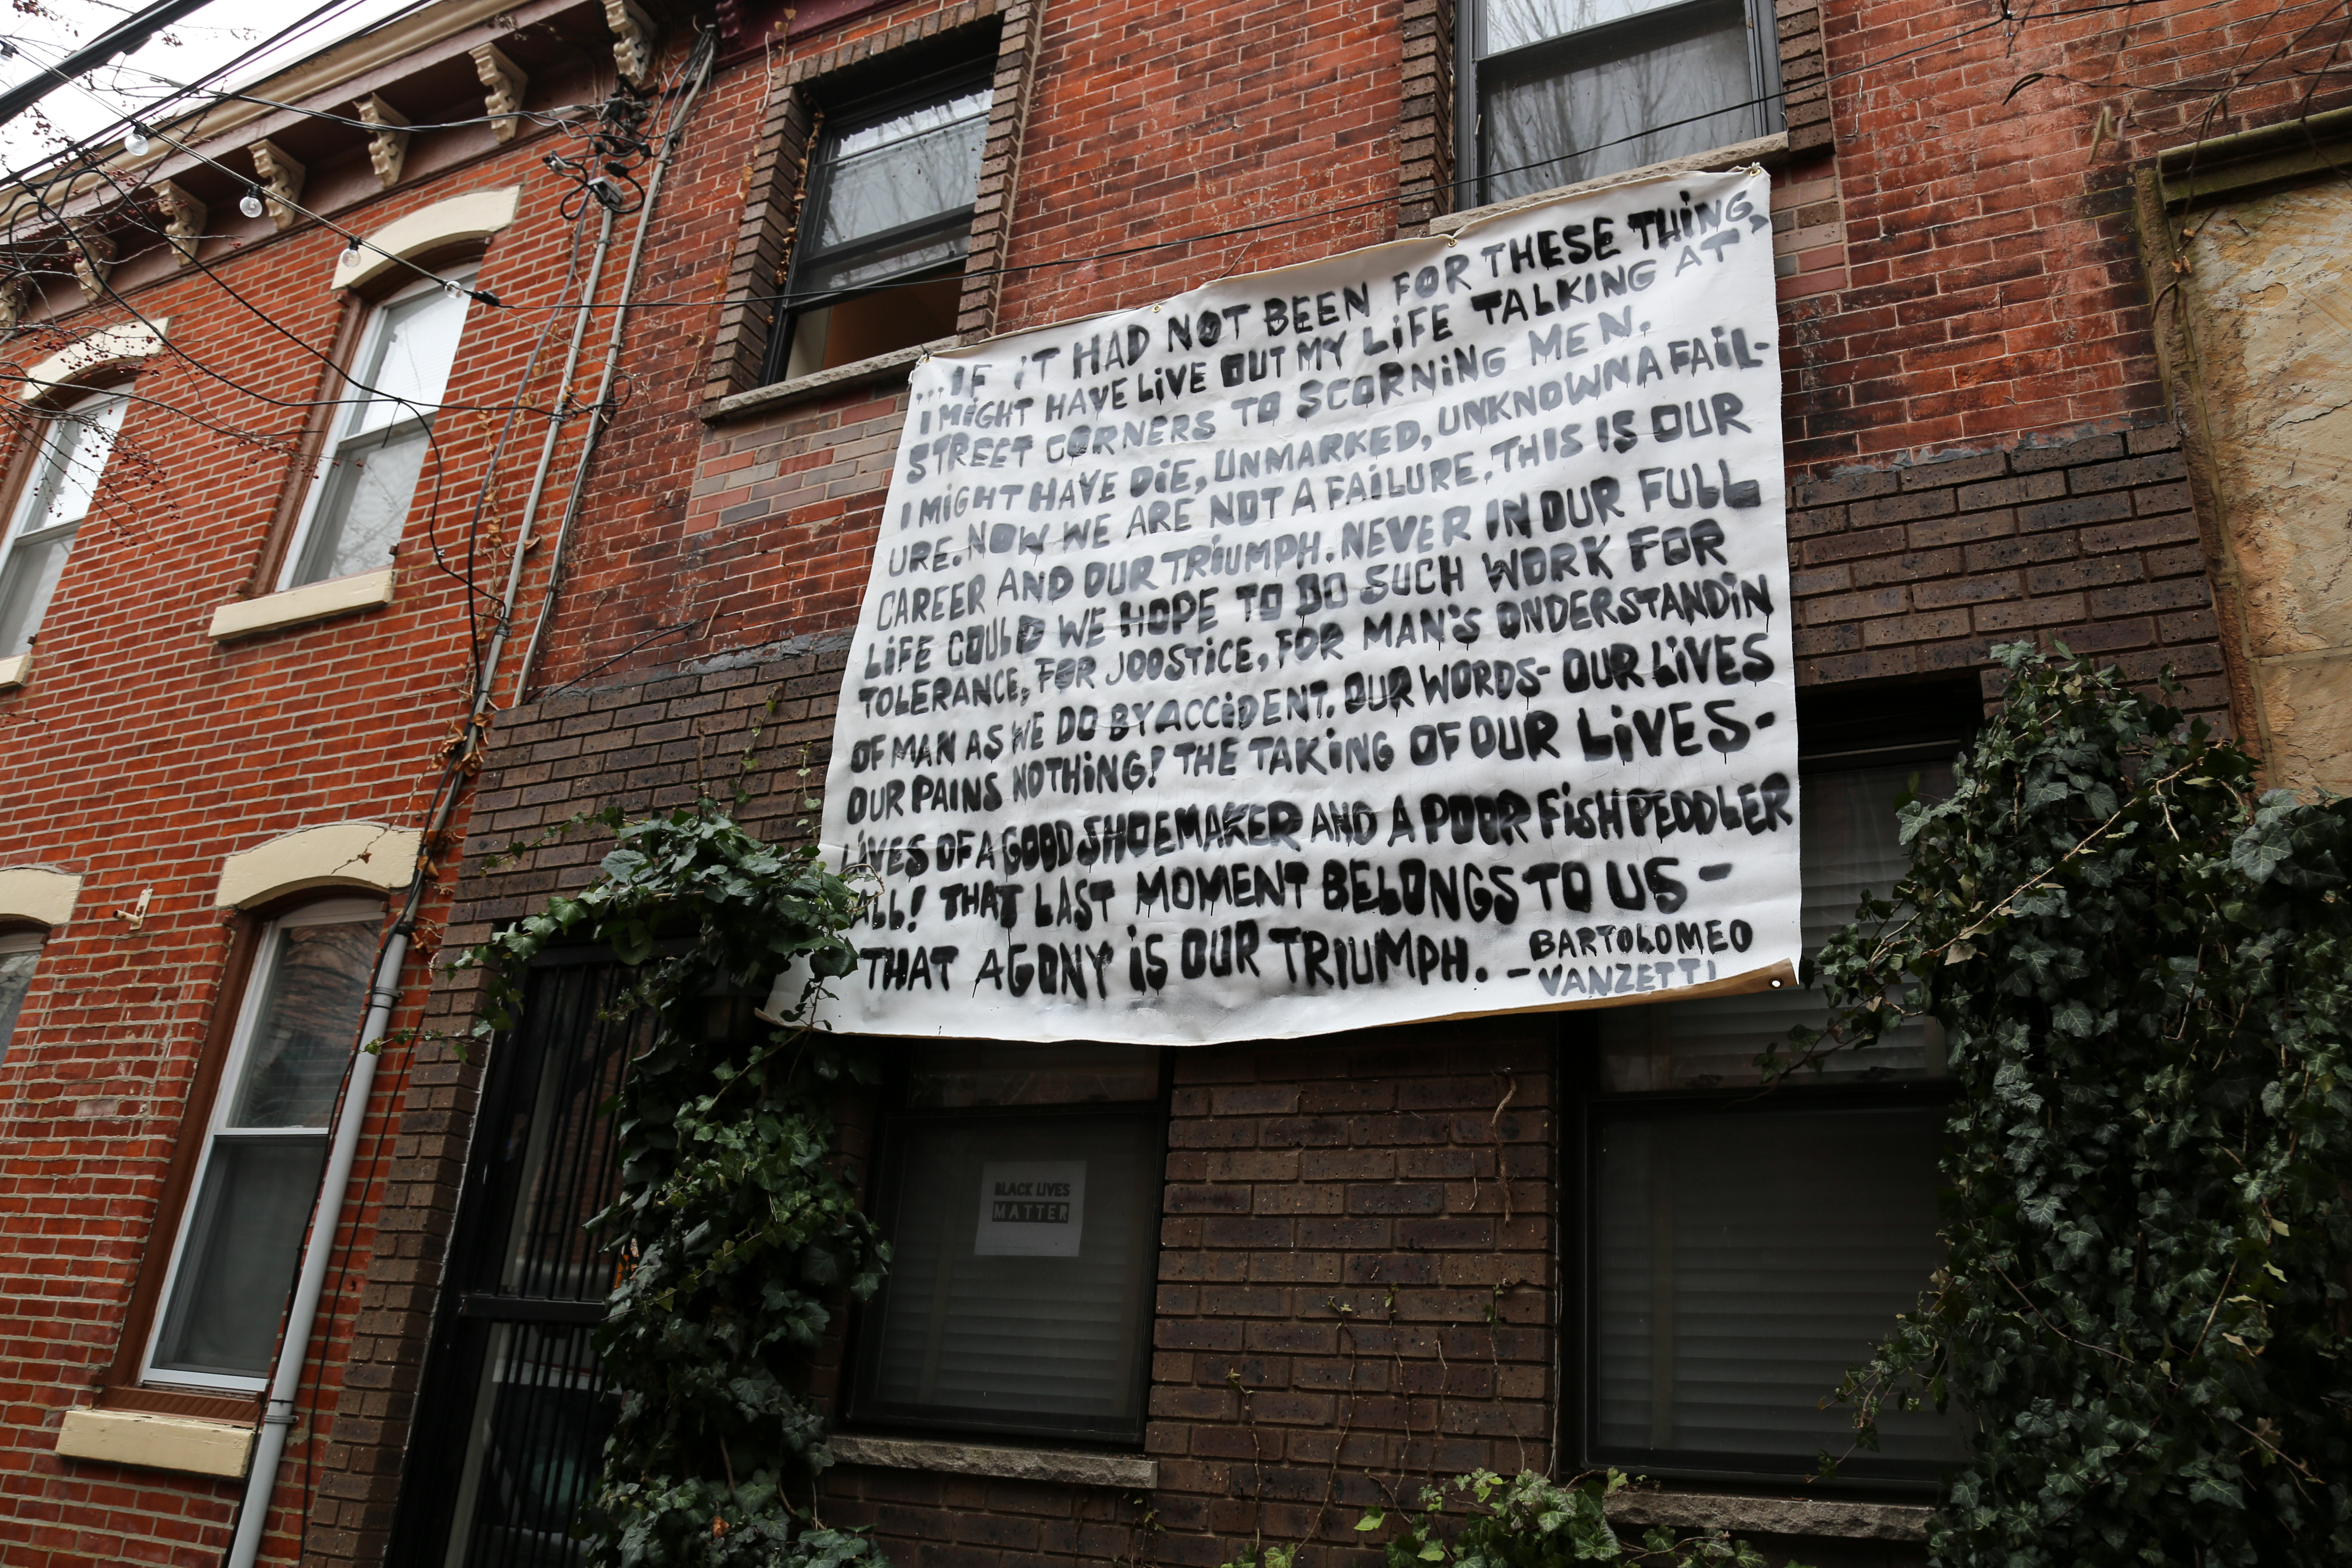 ...IF iT HAD NOT BEEN FOR THESE THiNG,
I MiGHT HAVE LiVE OUT MY LiFE TALKING AT
STREET CORNERS TO SCORNiNG MEN.
I MIGHT HAVE DiE, UNMARKED, UNKNOWN A FAiL-
URE. NOW WE ARE NOT A FAiLURE. THIS IS OUR
CAREER AND OUR TRiUMPH. NEVER IN OUR FULL
LiFE COULD WE HOPE TO DO SUCH WORK FOR
TOLERANCE, FOR JOOSTiCE, FOR MAN'S ONDERSTANDiN
OF MAN AS WE DO BY ACCiDENT. OUR WORDS- OUR LiVES
OUR PAiNS NOTHiNG! THE TAKiNG OF OUR LiVES-
LiVES OF A GOOD SHOEMAKER AND A POOR FiSH PEDDLER
ALL! THAT LAST MOMENT BELONGS TO US -
THAT AGONY iS OUR TRIUMPH. - BARTOLOMEO
VANZETTI
BLACK LIVES
MATTER